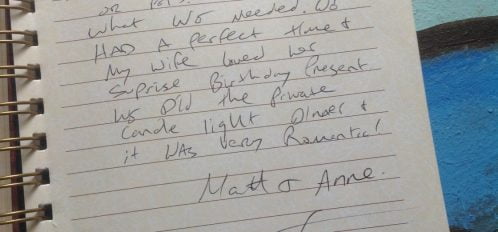 what we needed. We
HAD A Perfect time &
My Wife loved her
Suprise Birthday Present
We Did the Private
Candle light Dinner &
it was very Romantic!
Matt & Anne.